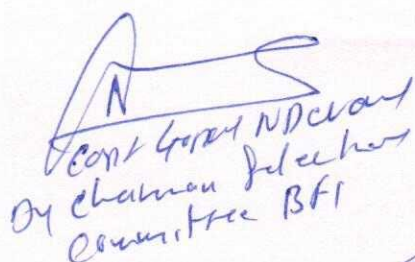 N
Capt Gopal N Devang
Dy Chairman Selection
Committee BFI